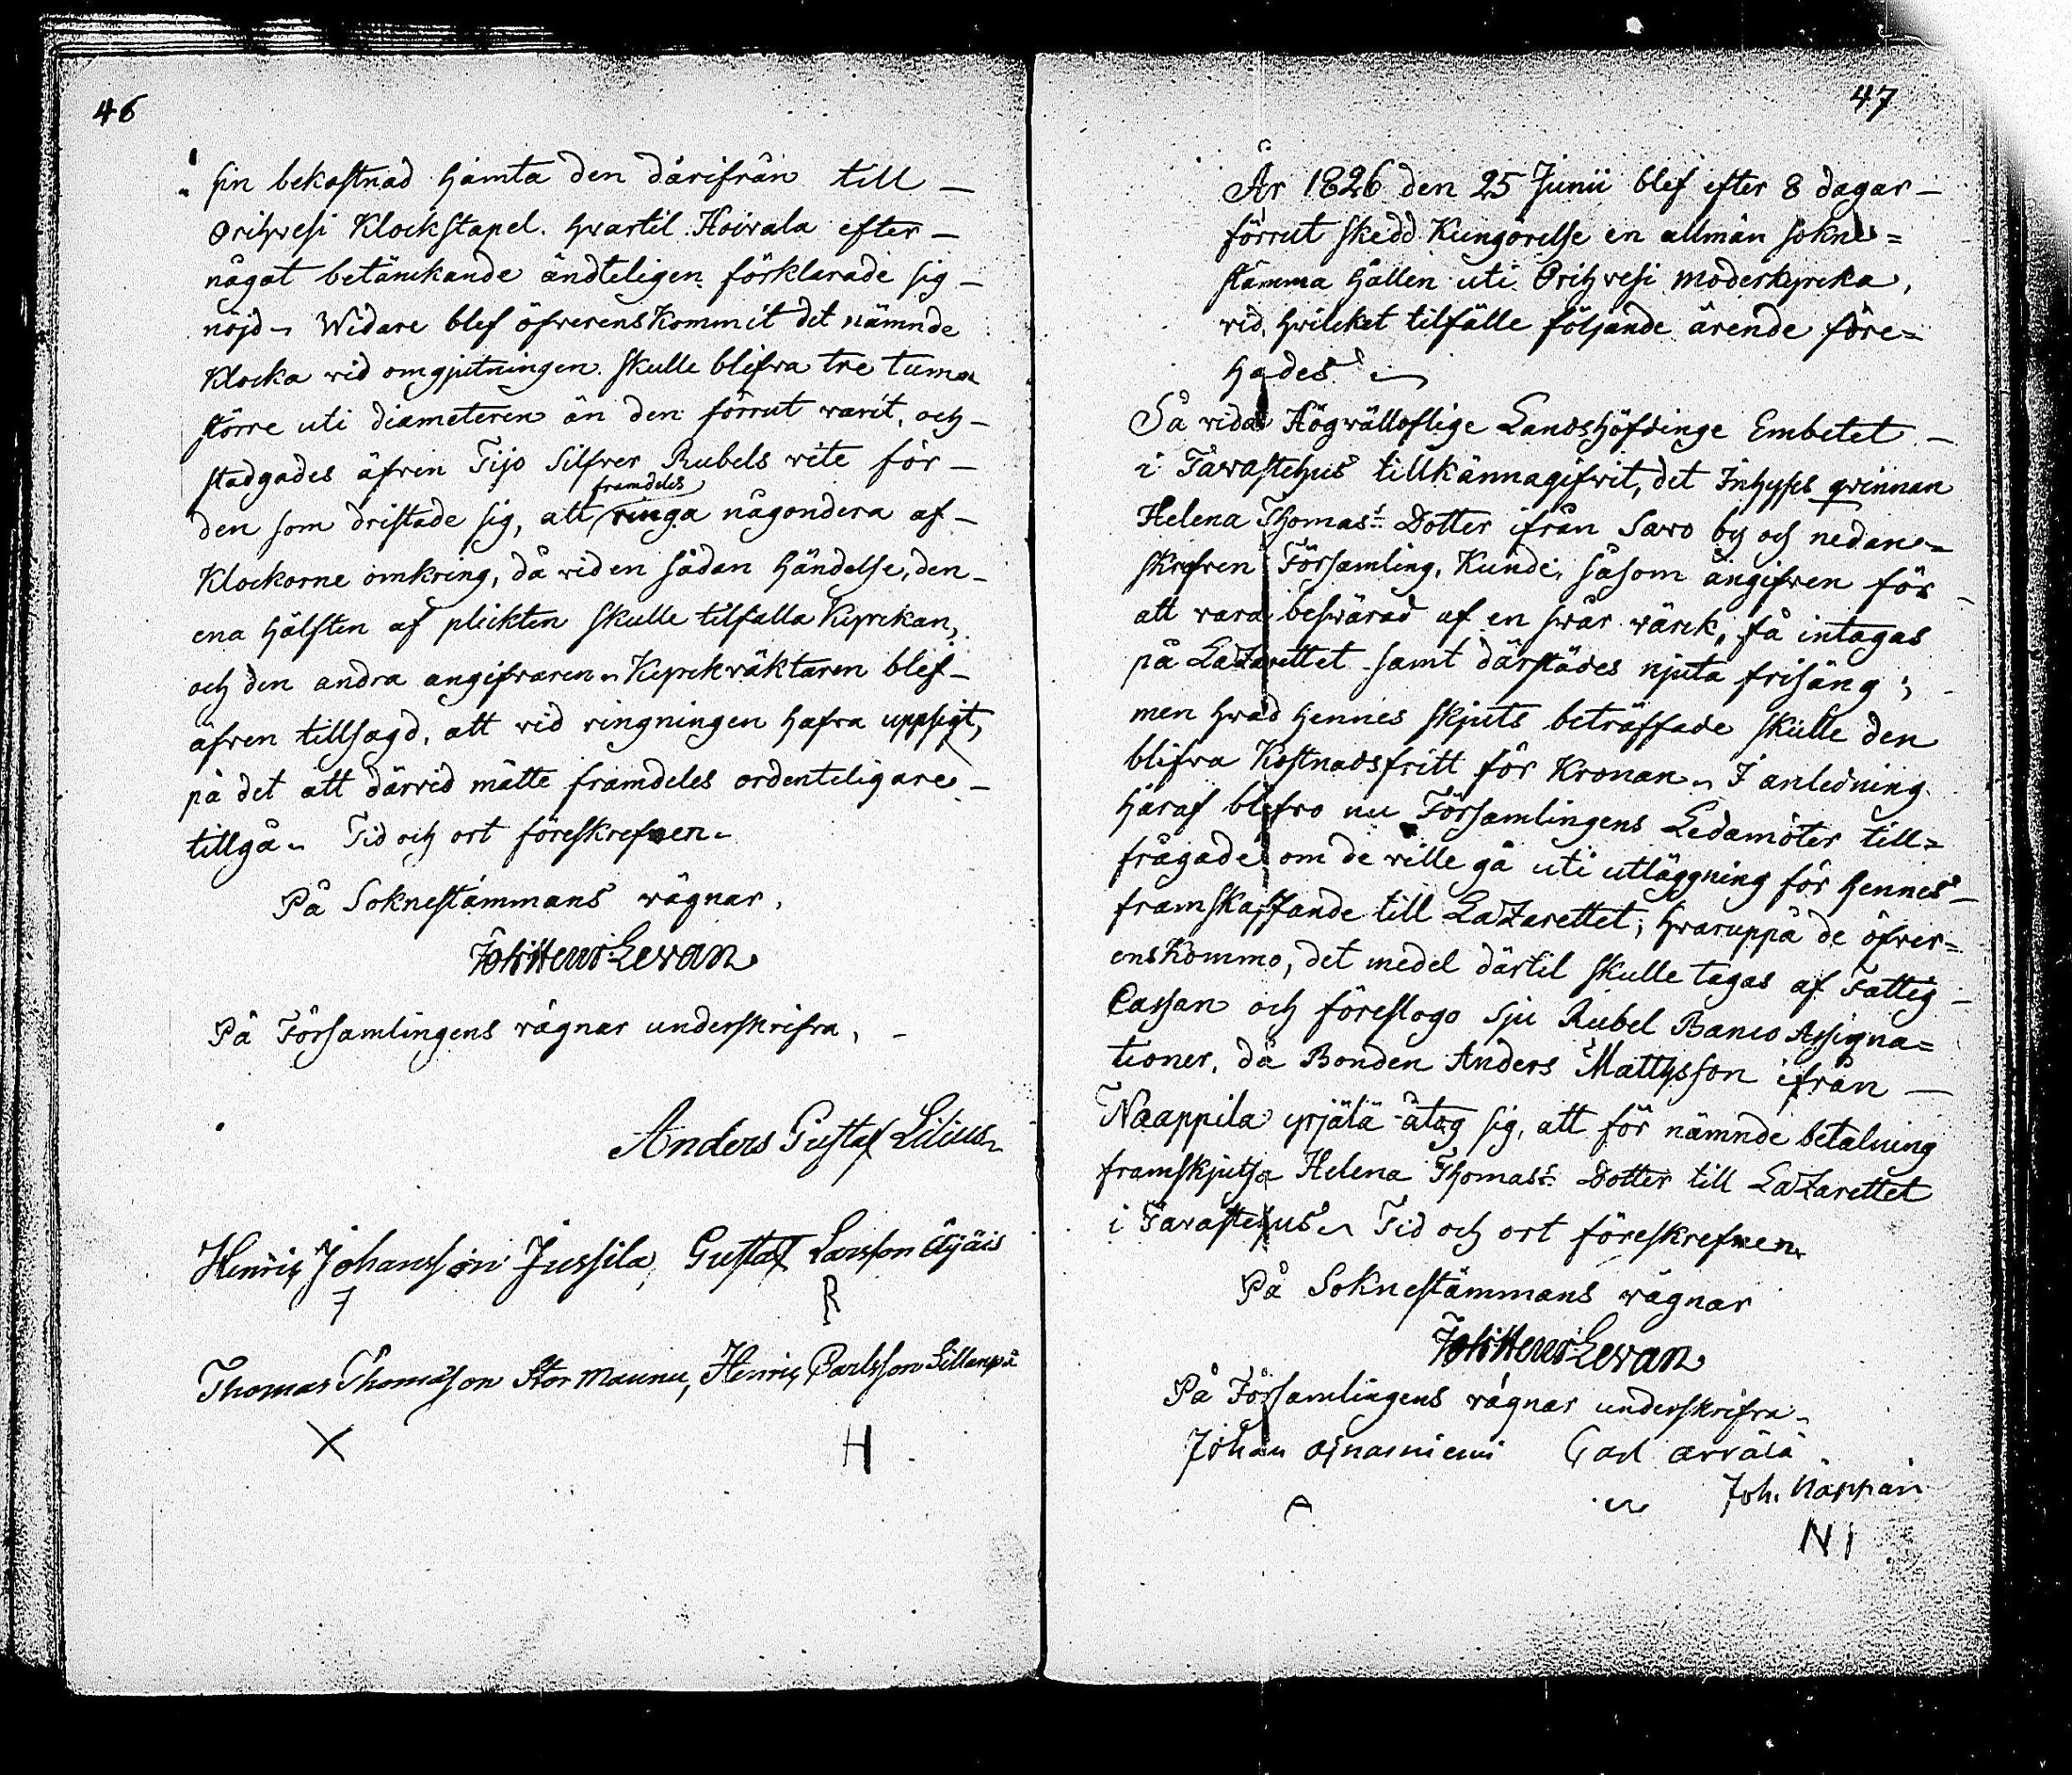 46
sin bekostnad hämta den därifrån till –
Orihvesi Klockstapel. hvartil Hoivala efter –
något betänckande ändteligen förklarade sig –
nöjd. Widare blef öfverenskommit det nämnde
Klocka vid omgjutningen skulle blifva tre tumar
större uti diameteren än den förrut varit, och –
stadgades äfven Tijo Silfver Rubels vite för –
framdeles
den som dristade sig, att ringa någondera af –
Klockorne omkring, då vid en sådan händelse, den –
ena hälften af plickten skulle tilfalla Kyrckan,
och den andra angifvaren. Kyrckväktaren blef –
äfven tillsagd, att vid ringningen hafva uppsigt,
på det att därvid måtte framdeles ordenteligare –
tillgå. Tid och ort föreskrefven.
På Soknestämmans vägnar,
Joh: Henr: Levan
På Församlingens vägnar underskrifva, –
Anders Gustaf Lilius
Henric Johansson Jussila, Gustaf Larsson Äijäis
7 R
Thomas Thomasson Stor Maunu, Henric Carlsson Sillanpä
X H
47
År 1826 den 25 Junii blef efter 8 dagar –
förrut skedd Kungörelse en allmän sokne=
stämma hållen uti Orihvesi moderkyrcka,
vid hvilcket tilfälle följande ärende före=
hades
Så vida Högvälloflige Landshöfdinge Embetet –
i Tavastehus tillkännagifvit, det Inhyses qvinnan
Helena Thomas: Dotter ifrån Savo by och nedan=
skrefven Församling, Kunde, såsom angifven för –
att vara besvärad af en svår värck, få intagas
på Lazarettet samt därstädes njuta frisäng; –
men hvad hennes skjuts beträffade skulle den
blifva Kostnadsfritt för Kronan. I anledning
häraf blefvo nu Församlingens Ledamöter till=
frågade om de ville gå uti utläggning för hennes –
framskaffande till Lazarettet; hvaruppå de öfver=
enskommo, det medel därtil skulle tagas af Fattig –
Cassan och föreslogo Sju Rubel Banco Assigna=
tioner, då Bonden Anders Mattysson ifrån –
Naappila yrjälä åtog sig, att för nämnde betalning
framskjutsa Helena Thomas: Dotter till Lazarettet
i Tavastehus. Tid och ort föreskrefven.
På Soknestämmans vägnar
Joh: Henr: Levan
På Församlingens vägnar underskrifva.
Johan Ajnasniemi Carl Arvälä
Joh. Näppäri
A
N I